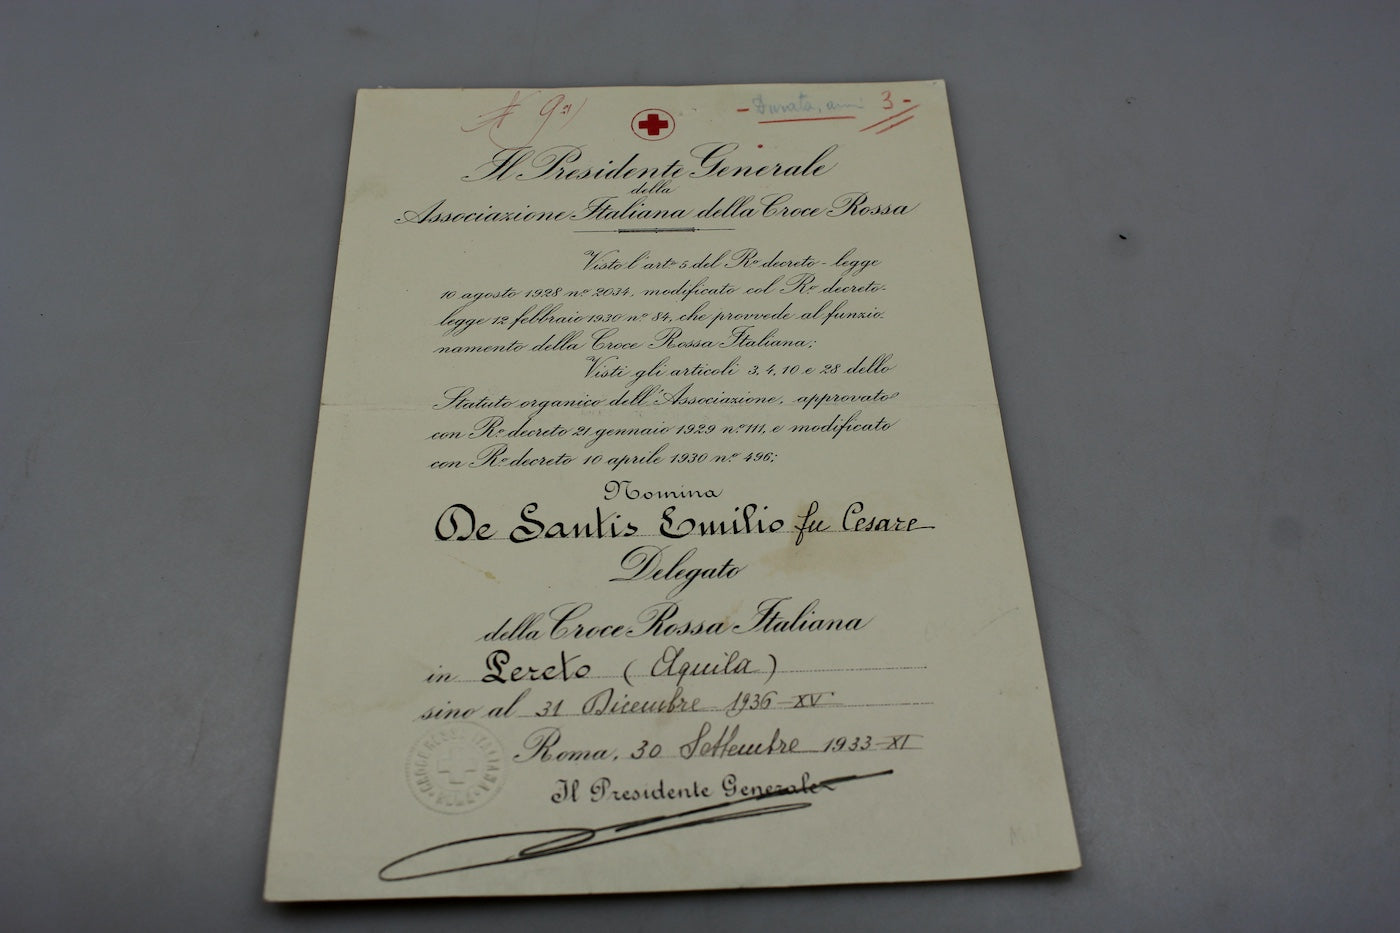 N 9
- Durata, anni 3 -
Il Presidente Generale
della
Associazione Italiana della Croce Rossa
Visto l'art.º 5 del R.º decreto-legge
10 agosto 1928 n.º 2034, modificato col R.º decreto-
legge 12 febbraio 1930 n.º 84, che provvede al funzio
namento della Croce Rossa Italiana;
Visti gli articoli 3, 4, 10 e 28 dello
Statuto organico dell'Associazione, approvato
con R.º decreto 21 gennaio 1929 n.º 111, e modificato
con R.º decreto 10 aprile 1930 n.º 496;
Nomina
De Santis Emilio fu Cesare
Delegato
della Croce Rossa Italiana
in Pereto (Aquila)
sino al 31 Dicembre 1936 - XV
Roma, 30 Settembre 1933 - XI
Il Presidente Generale
CROCE ROSSA ITALIANA